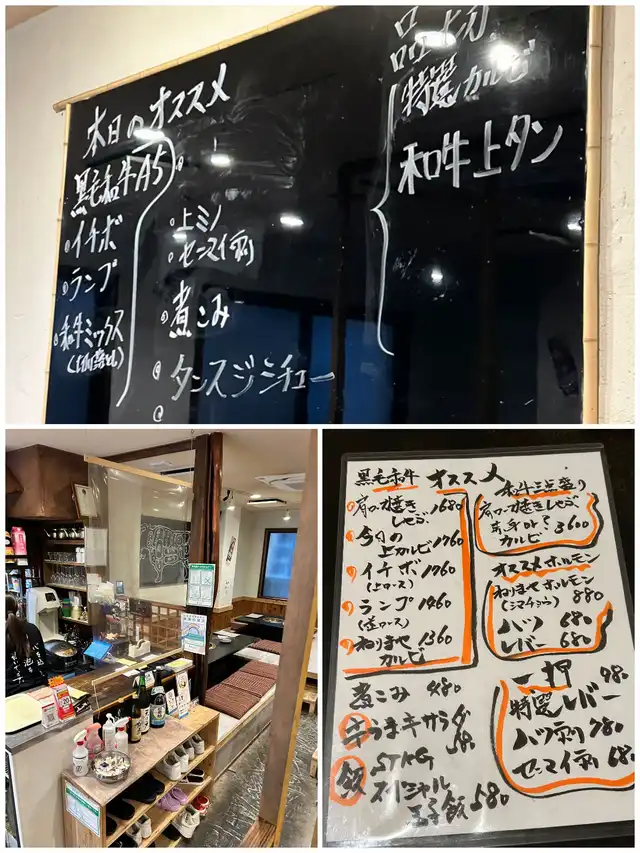 本日のオススメ
黒毛和牛A5
イチボ
ランプ
和牛ミックス
上ミノ
センマイ刺
煮こみ
タンスジシチュー
品切
特選カルビ
和牛上タン
黒毛和牛 オススメ
肩ロース焼き
しゃぶ 1680
今日の
上カルビ 1760
イチボ 1760
(上ロース)
ランプ 1460
(並ロース)
ねりまや 1360
カルビ
煮こみ 480
牛うまキサラダ
飯 STAG
スペシャル
玉子飯 580
和牛三点盛り
肩ロース焼きしゃぶ
3600
カルビ
オススメホルモン
ねりまやホルモン
(シマチョウ) 880
ハツ 680
レバー 680
一押
特選レバー 980
ハツ刺 780
センマイ刺 680